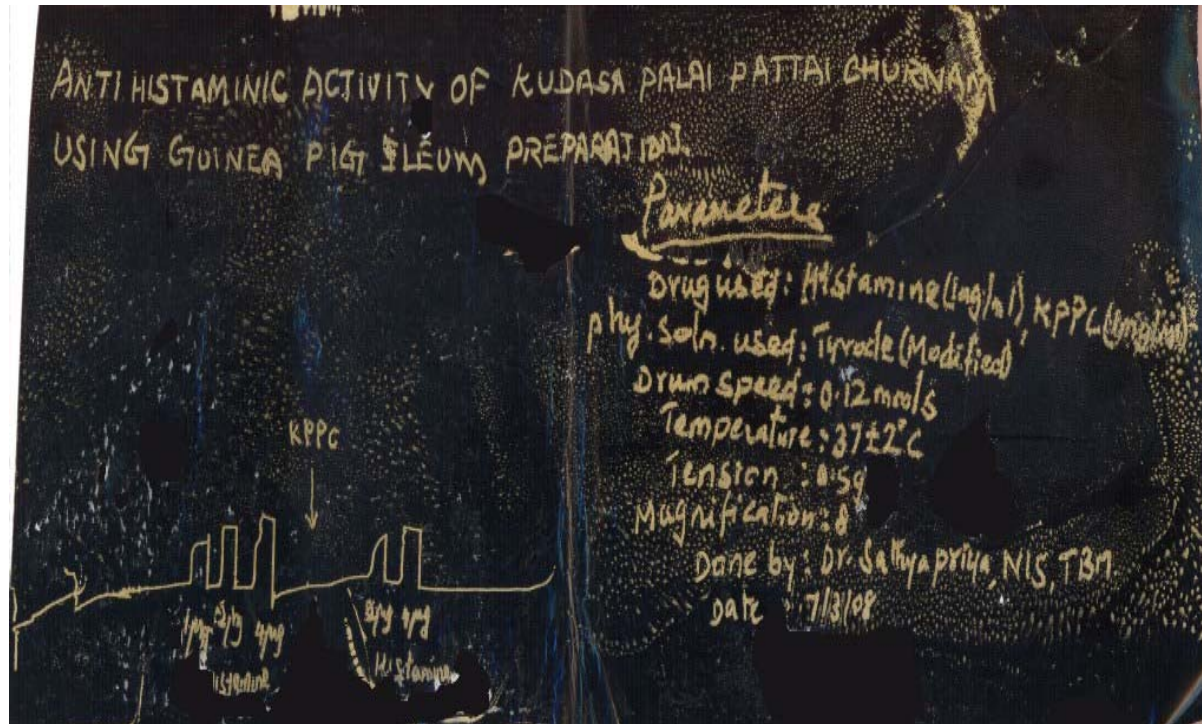 ANTI HISTAMINIC ACTIVITY OF KUDASA PALAI PATTAI CHURNAM
USING GUINEA PIG ILEUM PREPARATION.
Parameters
Drug used: Histamine (1mg/ml), KPPC
phy. soln. used: Tyrode (Modified)
Drum speed: 0.12 mm/s
Temperature: 37±2°C
Tension : 0.5g
Magnification: 8
Done by: Dr. Sathyapriya, NIS, TBM
Date : 7/3/08
KPPC
1μg 2μg 4μg 2μg 4μg
Histamine